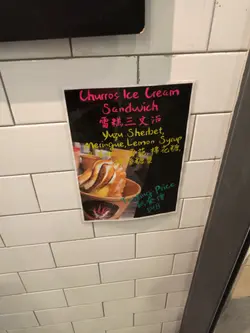 Churros Ice Cream
Sandwich
雪糕三文治
Yuzu Sherbet,
Meringue, Lemon Syrup
棉花糖
Price